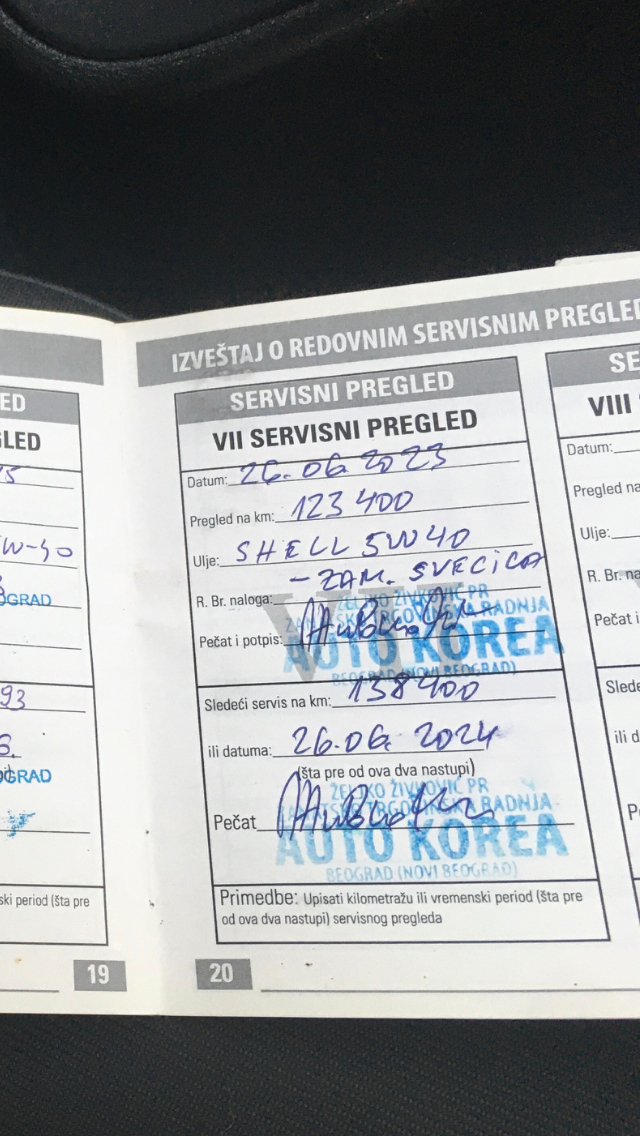 ED
GLED
W-40
OGRAD
93
OGRAD
ski period (šta pre
19
IZVEŠTAJ O REDOVNIM SERVISNIM PREGLED
SERVISNI PREGLED
VII SERVISNI PREGLED
Datum: 26.06.2023
Pregled na km: 123 400
Ulje: SHELL 5W40
- ZAM. SVECICA
R. Br. naloga:
VII
Pečat i potpis:
ŽELJKO ŽIVKOVIĆ PR
RADNJA
AUTO KOREA
BEOGRAD (NOVI BEOGRAD)
Sledeći servis na km: 138 400
ili datuma: 26.06. 2024
(šta pre od ova dva nastupi)
Pečat
ŽELJKO ŽIVKOVIĆ PR
RADNJA
AUTO KOREA
BEOGRAD (NOVI BEOGRAD)
Primedbe: Upisati kilometražu ili vremenski period (šta pre
od ova dva nastupi) servisnog pregleda
20
SE
VIII
Datum:
Pregled na
Ulje:
R. Br. na
Pečat i
Slede
ili d
P